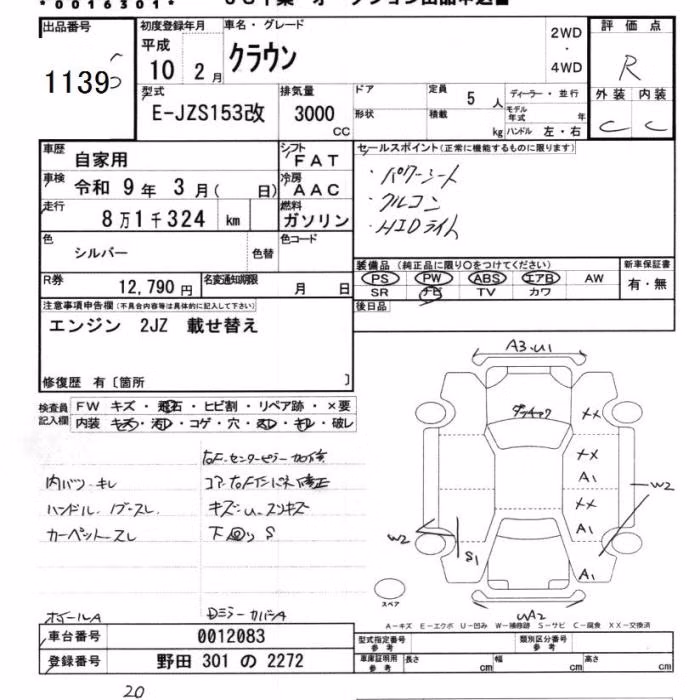 *0016301*
出品番号
11395
初度登録年月
平成
10 2月
車名・グレード
クラウン
2WD
・
4WD
評価点
R
外装 内装
C C
型式
E-JZS153改
排気量
3000
CC
ドア
形状
定員
5 人
積載
kg
ディーラー・並行
モデル年式 年
ハンドル 左・右
車歴
自家用
シフト
FAT
車検
令和 9年 3月( 日)
冷房
AAC
走行
8万1千324 km
燃料
ガソリン
色
シルバー
色替
色コード
R券
12,790 円
名変通知期限
月 日
セールスポイント(正常に機能するものに限ります)
・パワーシート
・クルコン
・HIDライト
装備品 (純正品に限り○をつけてください)
PS PW ABS エアB AW
SR ナビ TV カワ
新車保証書
有・無
後日品
注意事項申告欄(不具合内容等は具体的に記入して下さい)
エンジン 2JZ 載せ替え
修復歴 有〔箇所 〕
検査員記入欄
FW キズ・飛石・ヒビ割・リペア跡・×要
内装 キズ・汚レ・コゲ・穴・スレ・キレ・破レ
内バリ キレ
ハンドル、ノブ スレ
カーペット スレ
キズ・U・スリキズ
下回り S
ホイールA
Dミラーカバー A
A3・U1
XX
XX
A1
XX
A1
A1
W2
W2
S1
WA2
スペア
A-キズ E-エクボ U-凹み W-補修跡 S-サビ C-腐食 XX-交換済
車台番号
0012083
登録番号
野田 301 の 2272
型式指定番号
参考
類別区分番号
参考
車庫証明用
参考
長さ cm
幅 cm
高さ cm
20